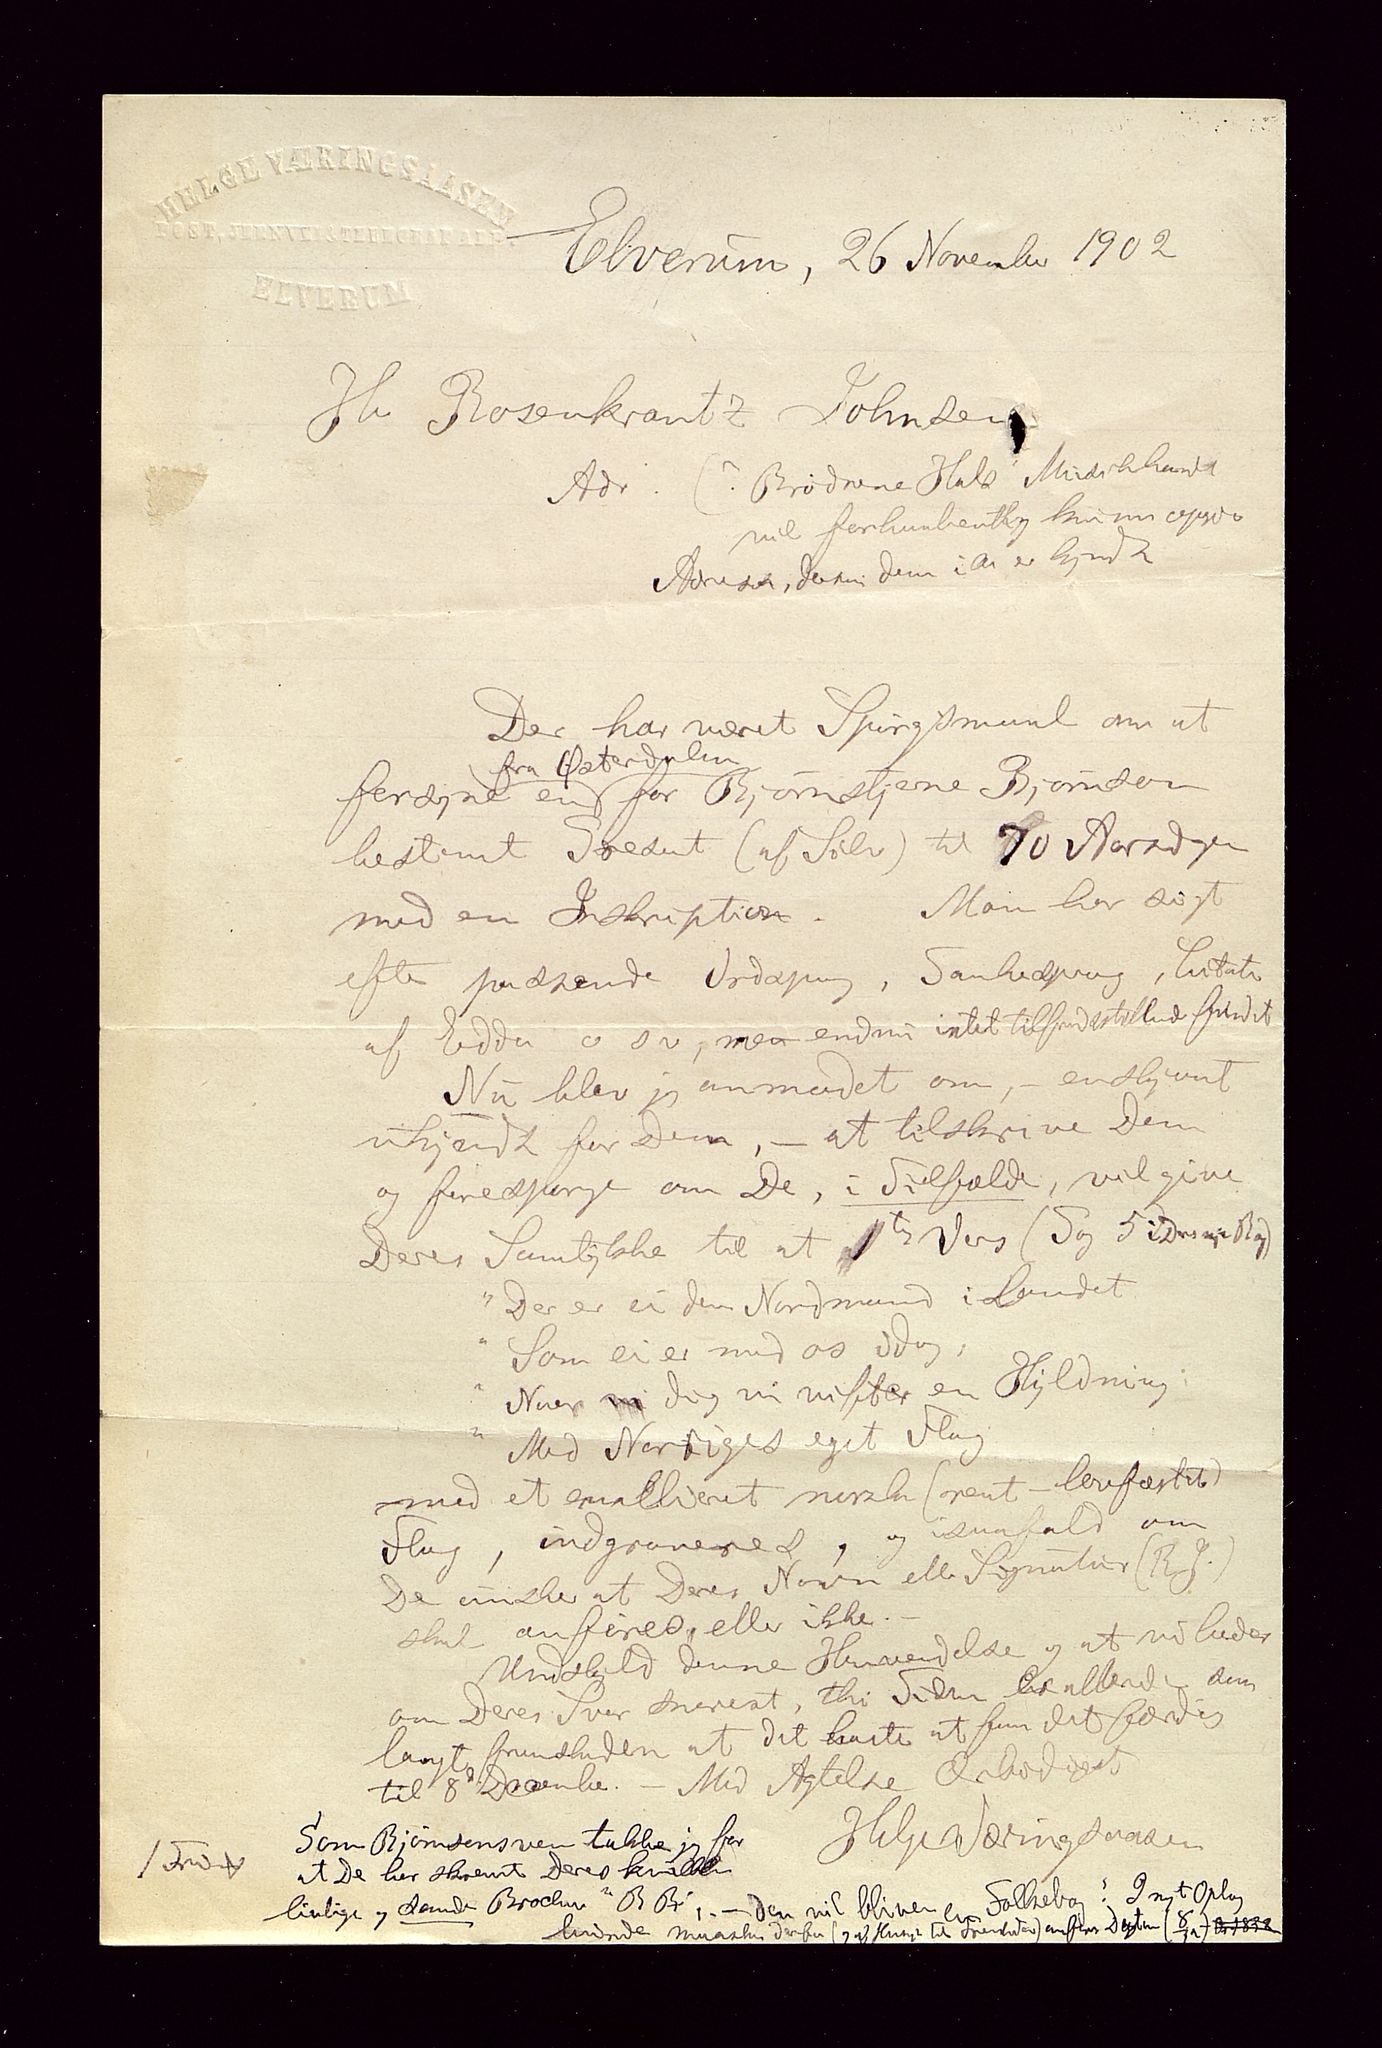 HELGE VÆRINGSAASEN
ELVERUM
Elverum, 26 November 1902
Hr Rosenkrantz Johnsen
Adr. (? Brødrene Hals' Musikhandel
vil forhaabentlig kunne opgive
Adressen, dersom den i er kjendt
Der har været Spørgsmaal om at
fra Østerdalen
forsyne en for Bjørnstjerne Bjørnson
bestemt Present (af Sølv) til 70 Aarsdagen
med en Inskription. Man har søgt
efter passende Ordsprog, Tankesprog, Citater
af Edda o s v, men endnu intet tilfredsstillende fundet
Nu blev jeg anmodet om, - enskjønt
ukjendt for Dem, - at tilskrive Dem
og forespørge om De, i Tilfælde, vil give
Deres Samtykke til at 1te Vers (Pag 5 i Deres Bog)
"Der er ei den Nordmand i Landet
"Som ei er med os idag,
"Naar dig vi vifter en Hyldning
"Med Norriges eget Flag
med et emallieret norsk (rent - lovfæstet)
Flag, indgraveres, og isaafald om
De ønsker at Deres Navn eller Signatur (R J.)
skal anføres, eller ikke. -
Undskyld denne Henvendelse og at vi beder
om Deres Svar snarest, thi Tiden er allerede saa
langt fremskreden at det haster at faa det færdig
til 8d Decembr. - Med Agtelse Ærbødigst
Helge Væringsaasen
Som Bjørnsonsven takker jeg for
at De har skrevet Deres
livlige og sande Brochure "B B"; - den vil blive en Folkebog? I nyt Oplag
kunde maaske anføres Datum (8/12)